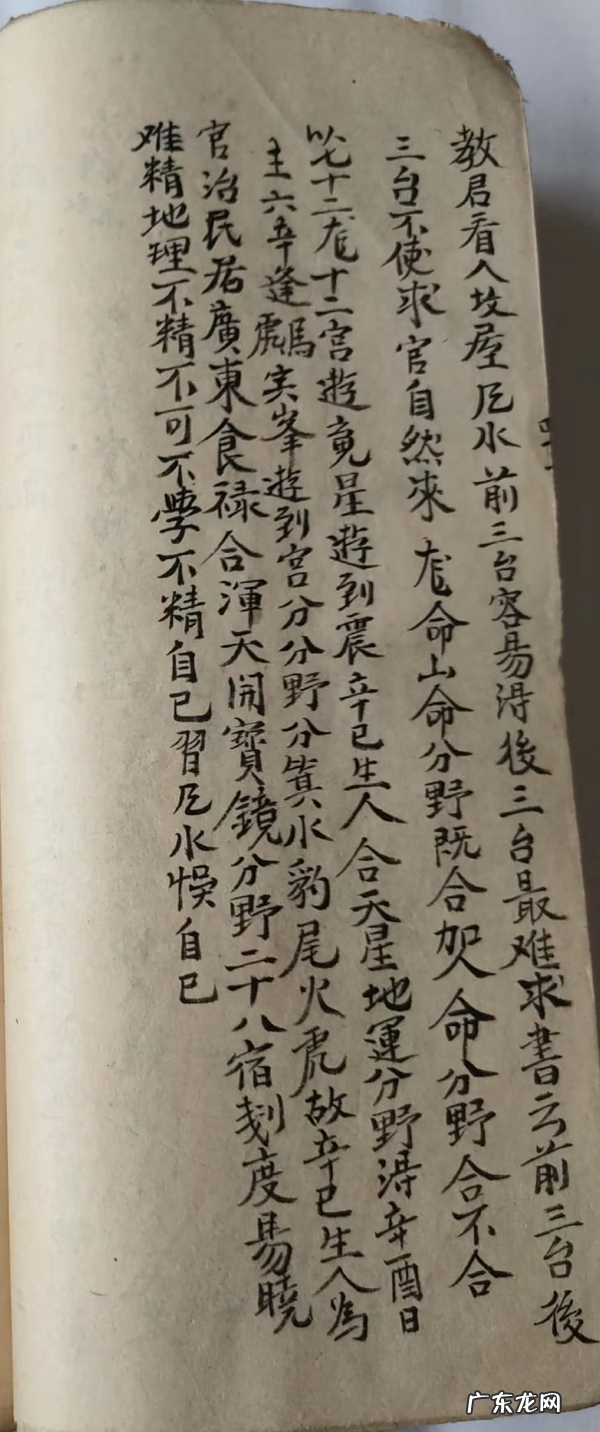 教君看人坟屋尼水前三台容易淂後三台最难求書云前三台後
三台不使求官自然來尨命山命分野既合如人命分野合不合
以七十二尨十二宮遊竟星遊到震辛已生人合天星地運分野淂辛酉日
主六辛逢馬虎实峯遊到宮分分野分箕水豹尾火虎故辛已生人為
官治民居廣東食禄合渾天開寶鏡分野二十八宿刻度易曉
难精地理不精不可不學不精自已習尼水悮自已
广东龙网